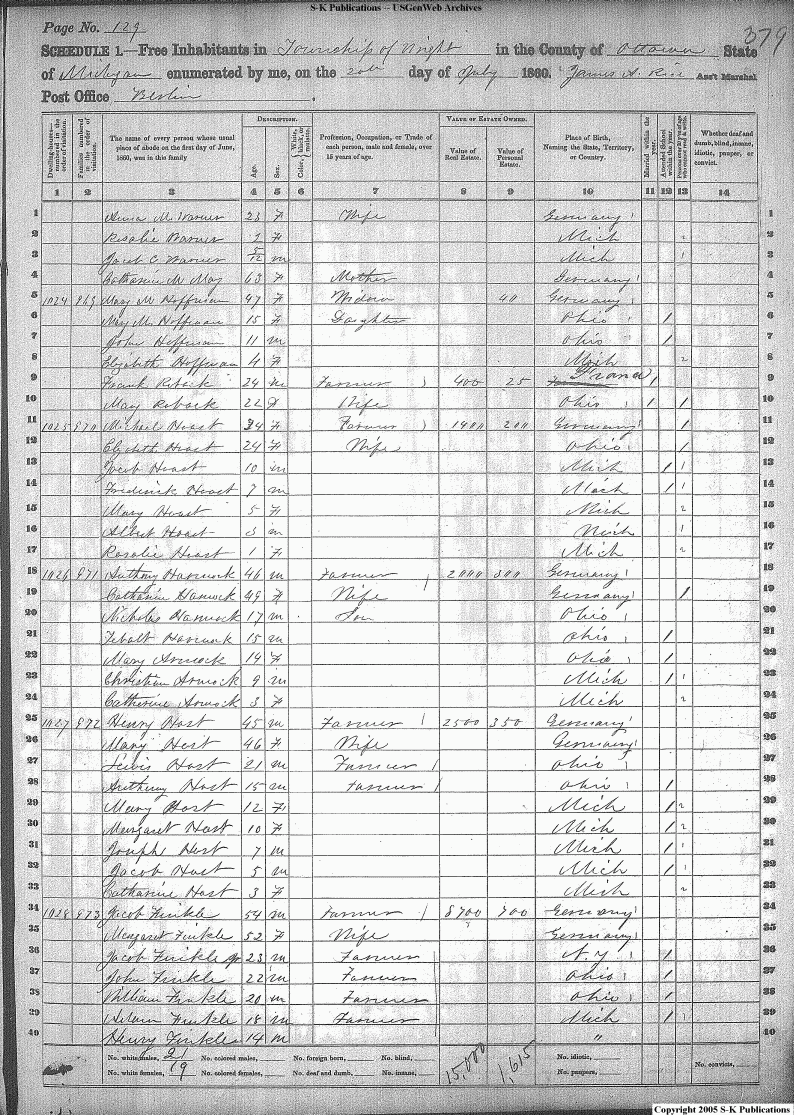 S-K Publications -- USGenWeb Archives
Page No. 129
379
SCHEDULE 1.—Free Inhabitants in Township of Wright in the County of Ottawa State
of Michigan enumerated by me, on the 20th day of July 1860. James A. Rice Ass't Marshal
Post Office Berlin.
Dwelling-houses—numbered in the order of visitation.
Families numbered in the order of visitation.
The name of every person whose usual place of abode on the first day of June, 1860, was in this family
DESCRIPTION.
Age.
Sex.
Color, White, black, or mulatto.
Profession, Occupation, or Trade of each person, male and female, over 15 years of age.
VALUE OF ESTATE OWNED.
Value of Real Estate.
Value of Personal Estate.
Place of Birth, Naming the State, Territory, or Country.
Married within the year.
Attended School within the year.
Whether deaf and dumb, blind, insane, idiotic, pauper, or convict.
1 2 3 4 5 6 7 8 9 10 11 12 13 14
1 Anna M. Warner 23 F Wife Germany 1
2 Rosalie Warner F Mich 2
3 Jacob C Warner 5/12 m Mich 3
4 Catharin M May 63 F Mother Germany 4
5 1024 969 Mary M Hoffman 47 F Widow 40 Germany 5
6 May M. Hoffman 15 F Daughter Ohio 1 6
7 John Hoffman 11 m Ohio 1 7
8 Elizabeth Hoffman 4 F Mich 8
9 Frank Roback 24 m Farmer 400 25 France 1 9
10 May Roback 22 F Wife Ohio 1 1 10
11 1025 970 Michael Hoast 34 F Farmer 1400 200 Germany 1 11
12 Elizbeth Hoast 24 F Wife Ohio 1 12
13 Jacob Hoast 10 m Mich 1 1 13
14 Frederick Hoast 7 m Mich 1 1 14
15 Mary Hoast 5 F Mich 2 15
16 Albert Hoast 3 m Mich 1 16
17 Rosalie Hoast 1 F Mich 2 17
18 1026 971 Anthony Hamock 46 m Farmer 2000 300 Germany 18
19 Catharin Hamock 49 F Wife Germany 1 19
20 Nicholas Hamock 17 m Son Ohio 20
21 Tebalt Hamock 15 m Ohio 1 21
22 Mary Armock 14 F Ohio 1 22
23 Christian Armock 9 m Mich 1 1 23
24 Catherine Armock 3 F Mich 2 24
25 1027 972 Henry Host 45 m Farmer 2500 350 Germany 25
26 Mary Host 46 F Wife Germany 26
27 Lewis Host 21 m Farmer Ohio 27
28 Anthony Host 15 m Farmer Ohio 1 28
29 Mary Host 12 F Mich 1 2 29
30 Margaret Host 10 F Mich 1 2 30
31 Joseph Host 7 m Mich 1 1 31
32 Jacob Host 5 m Mich 1 1 32
33 Catharine Host 3 F Mich 2 33
34 1028 973 Jacob Finkle 54 m Farmer 8700 700 Germany 34
35 Margaret Finkle 52 F Wife Germany 35
36 Jacob Finkle Jr 23 m Farmer N.Y 1 36
37 John Finkle 22 m Farmer Ohio 1 37
38 William Finkle 20 m Farmer Ohio 1 38
39 Finkle 18 m Farmer Mich 1 39
40 Henry Finkle 14 M " 40
No. white males, 21 No. colored males, No. foreign born, No. blind, 15,000 1,615 No. idiotic, No. convicts,
No. white females, 19 No. colored females, No. deaf and dumb, No. insane, No. paupers,
Copyright 2005 S-K Publications